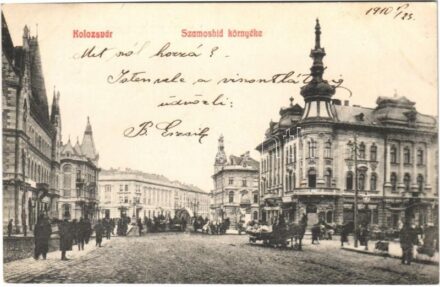 Kolozsvár
Szamoshid környéke
1910 /23.
Mit szól hozzá?
Isten vele a viszontlátásig
üdvözli:
B.